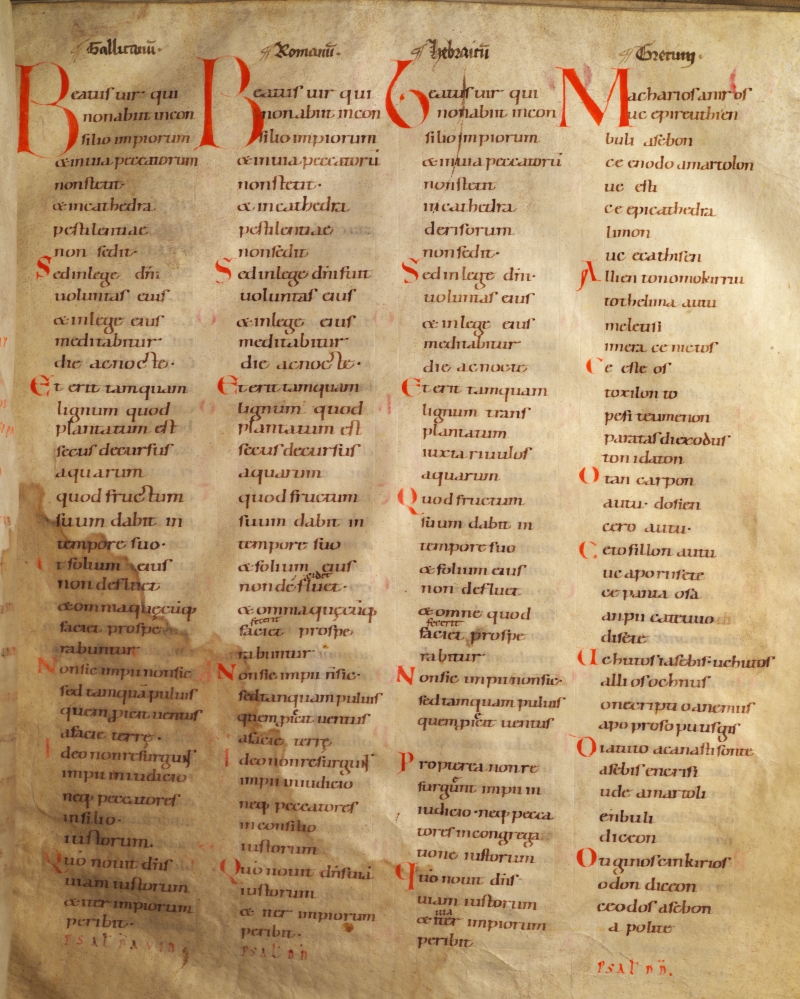 Gallicanū.
Beatuſ uir qui
non abiit in con
ſilio impiorum
& in uia peccatorum
non ſtetit·
& in cathedra
peſtilentiae
non ſedit·
Sed in lege dn̄i
uoluntaſ eiuſ
& in lege eiuſ
meditabitur
die ac nocte·
Et erit tamquam
lignum quod
plantatum eſt
ſecuſ decurſuſ
aquarum
quod fructum
ſuum dabit in
tempore ſuo·
& folium eiuſ
non defluet
& omnia quęcūq;
faciet proſpe
rabuntur
Non ſic impii non ſic
ſed tamquā puluiſ
quem p̄icit uentuſ
a facie terrę·
Ideo non reſurgūt
impii in iudicio
neq; peccatoreſ
in ſilio·
iuſtorum.
Quo nouit dn̄ſ
uiam iuſtorum
& iter impiorum
peribit·
Romanū·
Beatuſ uir qui
non abiit in con
ſilio impiorum
& in uia peccatorū
non ſtetit·
& in cathedra
peſtilentiae
non ſedit
Sed in lege dn̄i fuit
uoluntaſ eiuſ
& in lege eiuſ
meditabitur
die ac nocte·
Et erit tamquam
lignum quod
plantatum eſt
ſecuſ decurſuſ
aquarum
quod fructum
ſuum dabit in
tempore ſuo
& folium eiuſ
non defluet·
& omnia quęcūq;
fecerit
faciet proſpe
rabuntur
Non ſic impii n̄ ſic·
ſed tanquam puluiſ
quem p̄icit uentuſ
a facie terrę
Ideo non reſurgūt
impii in iudicio
neq; peccatoreſ
in conſilio
iuſtorum
Quō nouit dn̄ſ uiā
iuſtorum
& iter impiorum
peribit·
Hebraicū
Beatuſ uir qui
non abiit in con
ſilio impiorum
& in uia peccatorū
non ſtetit
in cathedra
deriſorum
non ſedit·
Sed in lege dn̄i·
uoluntaſ eiuſ
& in lege eiuſ
meditabitur
die ac nocte
Et erit tamquam
lignum tranſ
plantatum
iuxta riuuloſ
aquarum
Quod fructum
ſuum dabit in
tempore ſuo
& folium eiuſ
non defluet
& omne quod
fecerit
faciet proſpe
rabitur
Non ſic impii non ſic·
ſed tamquam puluiſ
quem p̄icit uentuſ
Propterea non re
ſurgunt impii in
iudicio· neq; pecca
toreſ in congrega
tione iuſtorum
Quō nouit dn̄ſ·
uiam iuſtorum
& iter impiorum
peribit
Grecum
Macharioſ anir oſ
uc epireuthien
buli aſebon
ce enodo amartolon
uc eſti
ce epicathedra
limon
uc ecathiſen
Allien tonomo kirriu
to thelima autu
meletiſi
imera ce nictoſ
Ce eſte oſ
toxilon to
pefiteumenon
parataſ diexoduſ
ton idaton
Otan carpon
autu· doſien
cero autu·
Ceto fillon autu
uc aporriſete
ce panta oſa
diſete
Uchutoſ i aſebiſ· uchutoſ
alli oſ ochnuſ
on ecripti o anemuſ
apo proſopu tiſ giſ
Oiatuto ac anaſtiſonte
aſebiſ encriſi
ude amartoli
enbuli
diceon
Oti ginoſcin kirioſ
odon diceon
ce odoſ aſebon
a polite
PSAL